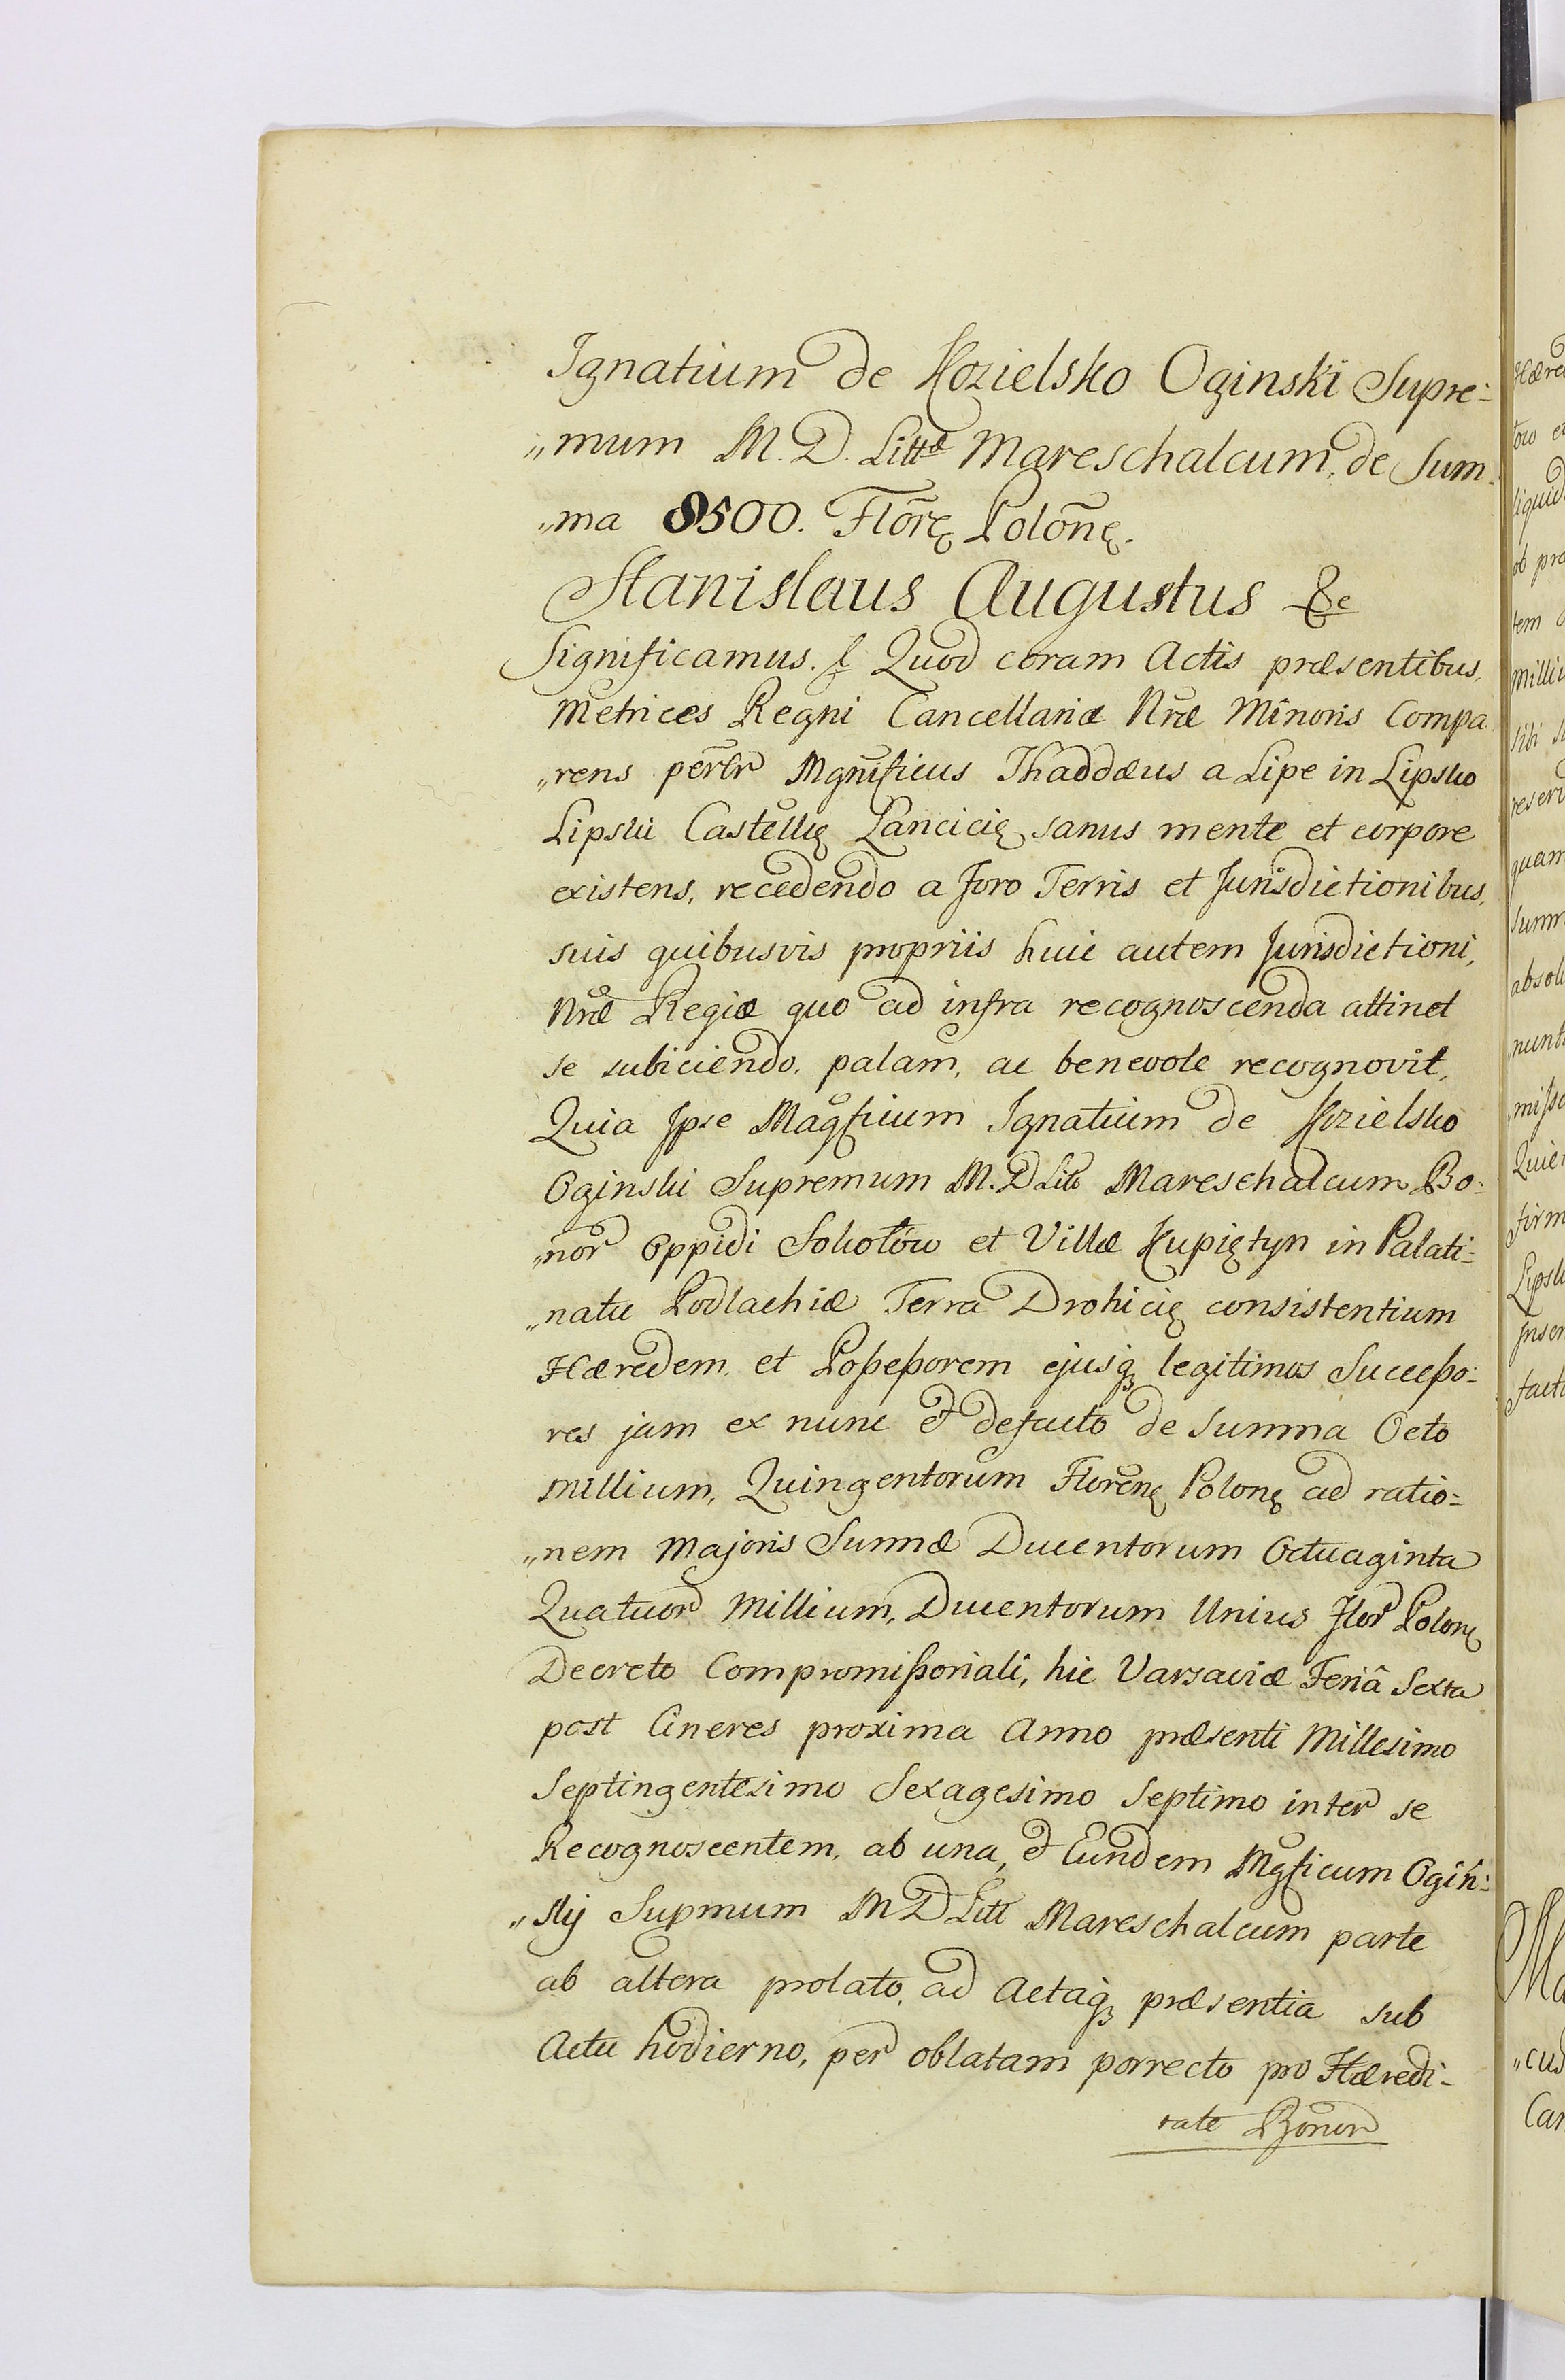 Ignatium de Kozielsko Oginski Supre=
„mum M. D. Littæ Mareschalcum, de Sum=
„ma 8500. Flōrę Polōnę.
Stanislaus Augustus &c
Significamus. & Quod coram Actis præsentibus,
Metrices Regni Cancellariæ Nræ Minoris Compa
„rens perslr Mgnificus Thaddæus a Lipe in Lipsko
Lipski Castellę Lancicię sanus mente et corpore
existens, recedendo a foro Terris et Jurisdictionibus,
suis quibusvis propriis huic autem Jurisdictioni,
Nræ Regiæ quo ad infra recognoscenda attinet
se subiciendo, palam, ac benevole recognovit,
Quia Ipse Magficum Ignatium de Kozielsko
Oginski Supremum M. D Litt Mareschalcum Bo=
„nor Oppidi Sokołów et Villæ Kupiętyn in Palati=
„natu Podlachiæ Terra Drohicię consistentium
Hæredem, et Possessorem ejusq3 legitimos Successo=
res jam ex nunc et defacto de Summa Octo
Millium, Quingentorum Florenę Polonę ad ratio=
„nem Majoris Summæ Ducentorum Octuaginta
Quatuor Millium, Ducentorum Unius Flor Polonę
Decreto Compromissoriali, hic Varsaviæ Feriâ Sexta
post Cineres proxima Anno præsenti Millesimo
Septingentesimo Sexagesimo Septimo inter se
Recognoscentem, ab una, et Eundem Mgficum Ogiń=
„skij Supmum M D Litt Mareschalcum parte
ab altera prolato, ad Actaq3 præsentia sub
Actu hodierno, per oblatam porrecto pro Hæredi=
tate Bonor